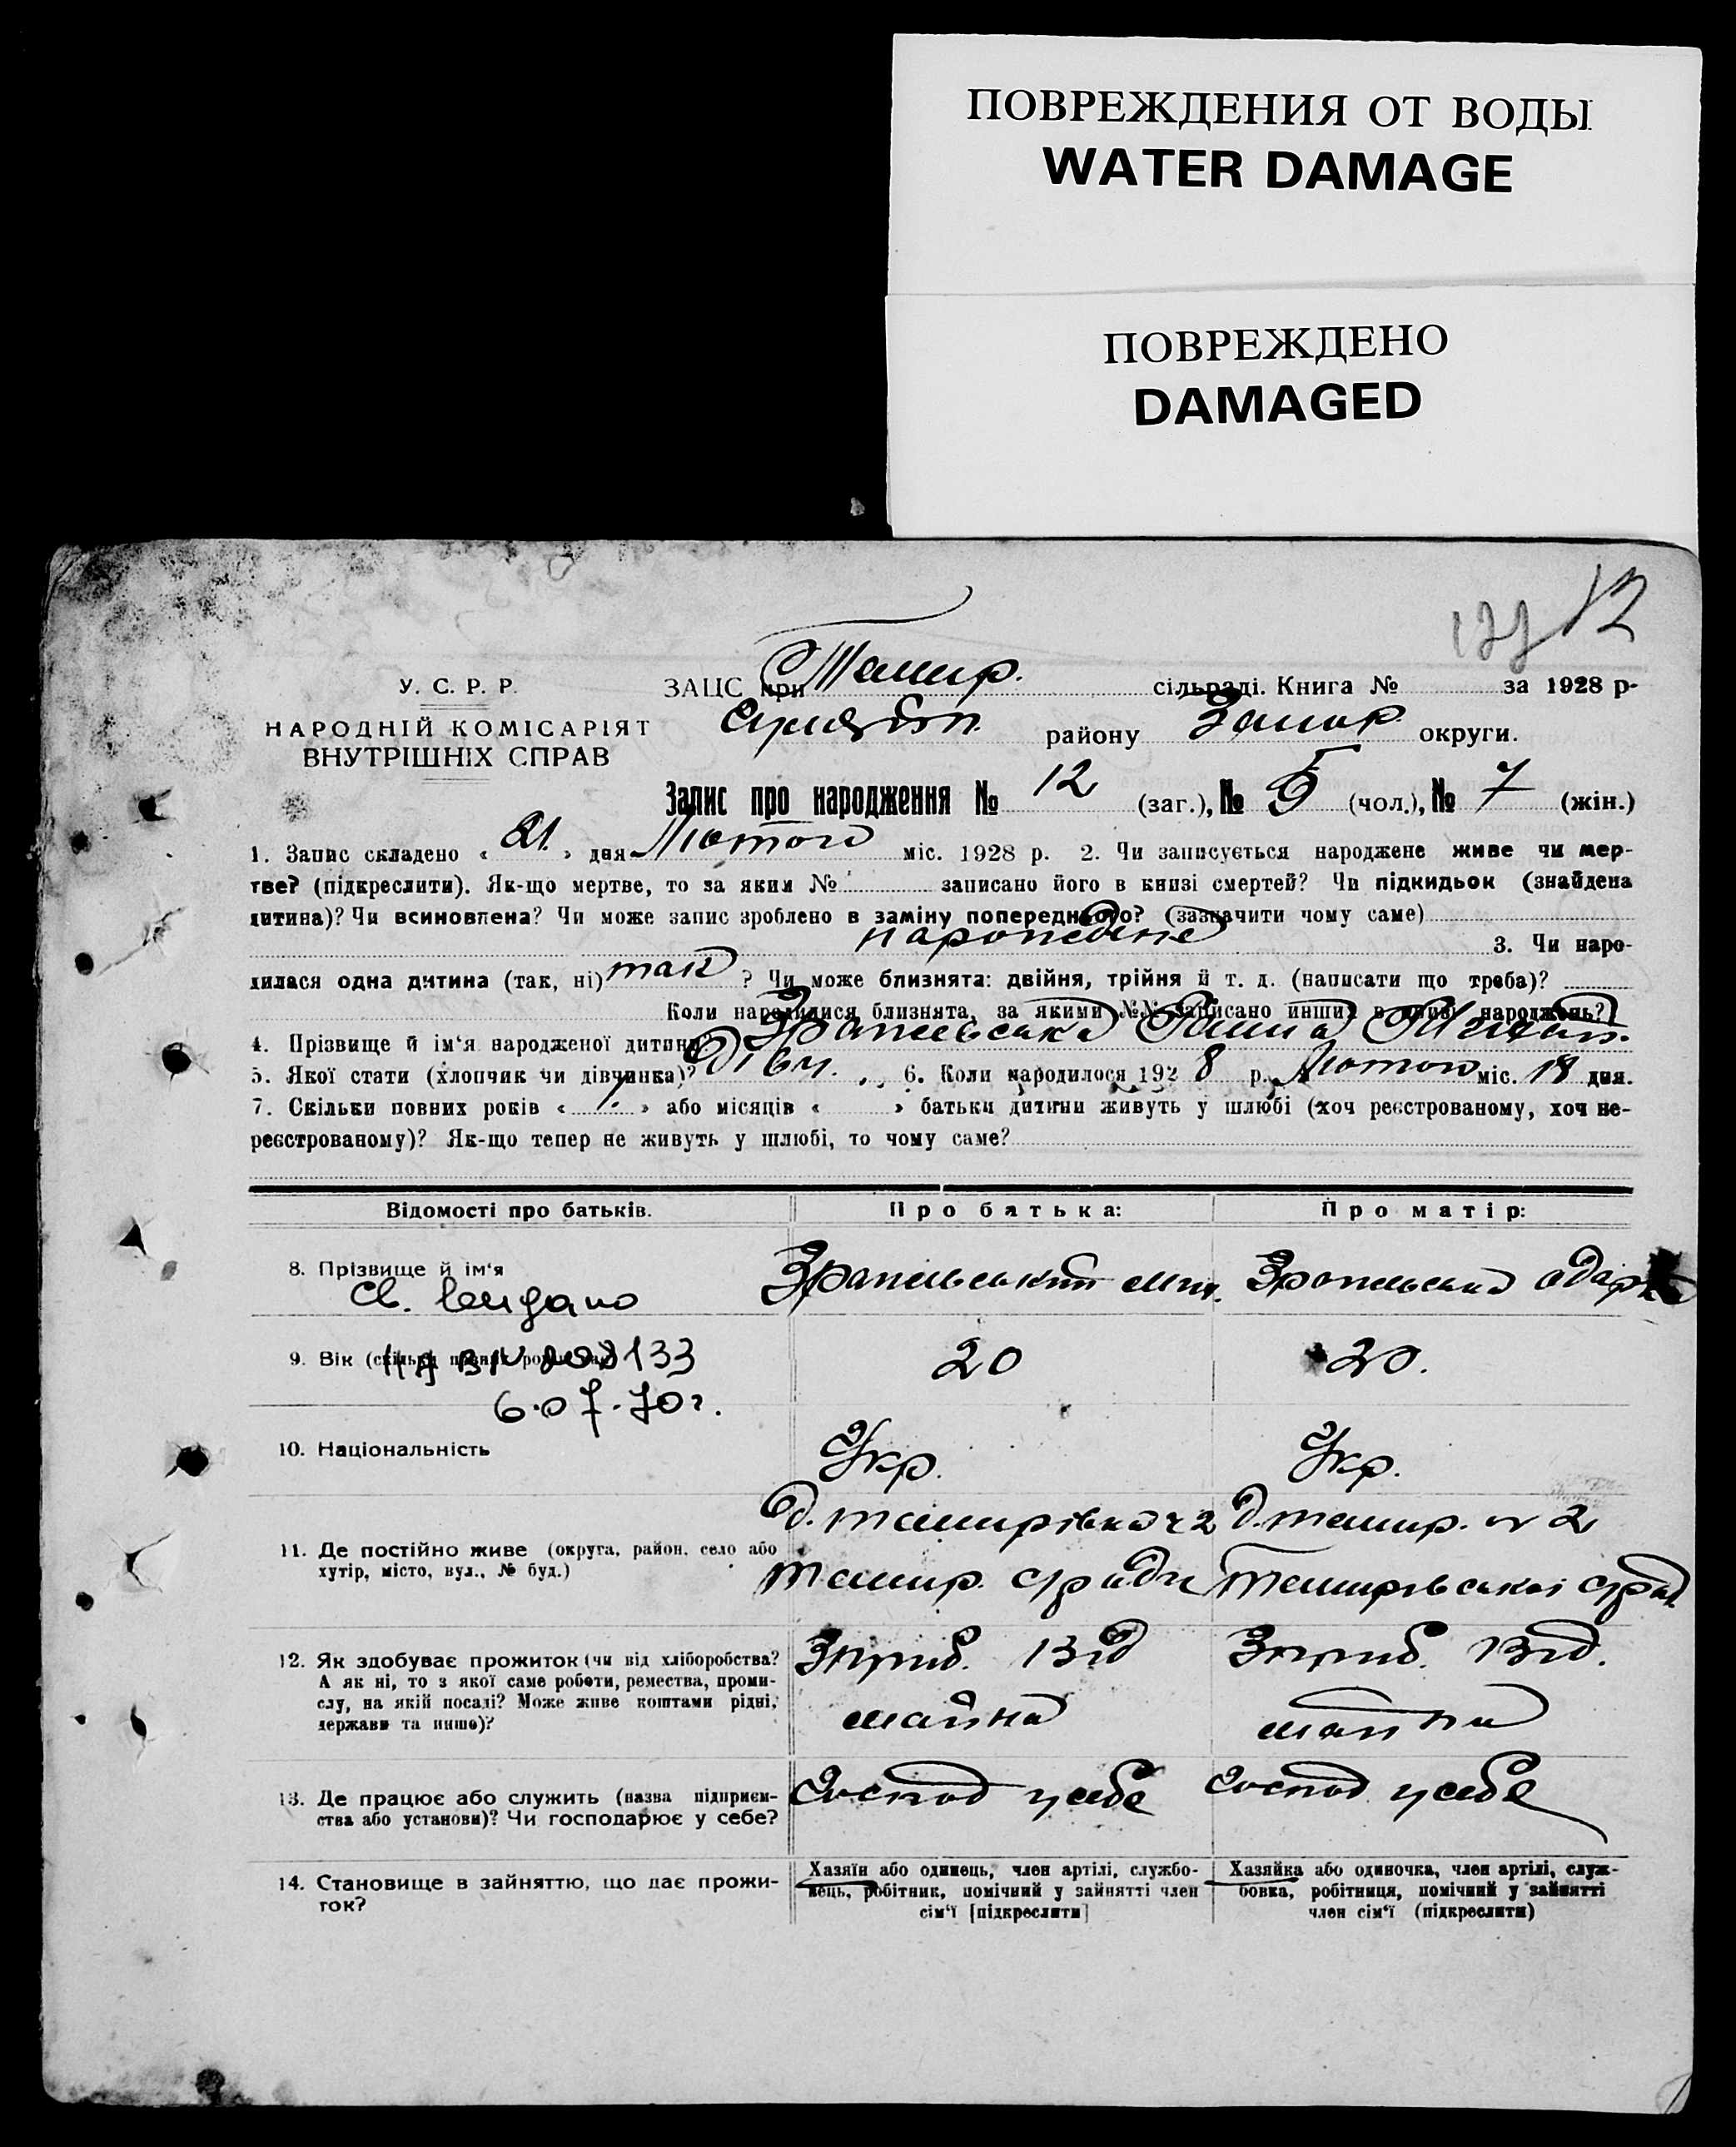 ПОВРЕЖДЕНИЯ ОТ ВОДЫ
WATER DAMAGE
ПОВРЕЖДЕНО
DAMAGED
12
У. С. Р. Р.
НАРОДНІЙ КОМІСАРІЯТ
ВНУТРІШНІХ СПРАВ
ЗАЦС при сільраді. Книга № за 1928 р.
району Запор. округи.
Запис про народження № 12 (заг.), № 5 (чол.), № 7 (жін.)
1. Запис складено « 21 » дня Лютого міс. 1928 р. 2. Чи записується народжене живе чи мер-
тве? (підкреслити). Як-що мертве, то за яким № записано його в книзі смертей? Чи підкидьок (знайдена
дитина)? Чи всиновлена? Чи може запис зроблено в заміну попереднього? (зазначити чому саме)
3. Чи наро-
дилася одна дитина (так, ні) так ? Чи може близнята: двійня, трійня й т. д. (написати що треба)?
Коли народилися близнята, за якими №№ записано инших в книзі народжень?
4. Прізвище й ім‘я народженої дитини
5. Якої стати (хлопчик чи дівчинка)? Дівч. 6. Коли народилося 1928 р. Лютого міс. 18 дня.
7. Скільки повних років « 1 » або місяців « » батьки дитини живуть у шлюбі (хоч реєстрованому, хоч не-
реєстрованому)? Як-що тепер не живуть у шлюбі, то чому саме?
Відомості про батьків. Про батька: Про матір:
8. Прізвище й ім‘я
Св. выдано
133
9. Вік (скільки повних років має) 20 20.
6.07.70г.
10. Національність Укр. Укр.
11. Де постійно живе (округа, район, село або
хутір, місто, вул., № буд.)
12. Як здобуває прожиток (чи від хліборобства?
А як ні, то з якої саме роботи, ремества, проми-
слу, на якій посаді? Може живе коштами рідні,
держави та инше)?
Зприб. Від Зприб. Від.
майна майна
13. Де працює або служить (назва підприєм-
ства або установи)? Чи господарює у себе?
Господ у себе Господ у себе
14. Становище в зайняттю, що дає прожи-
ток?
Хазяїн або одинець, член артілі, службо-
вець, робітник, помічний у зайнятті член
сім‘ї [підкреслити]
Хазяйка або одиночка, член артілі, служ-
бовка, робітниця, помічний у зайнятті
член сім‘ї (підкреслити)